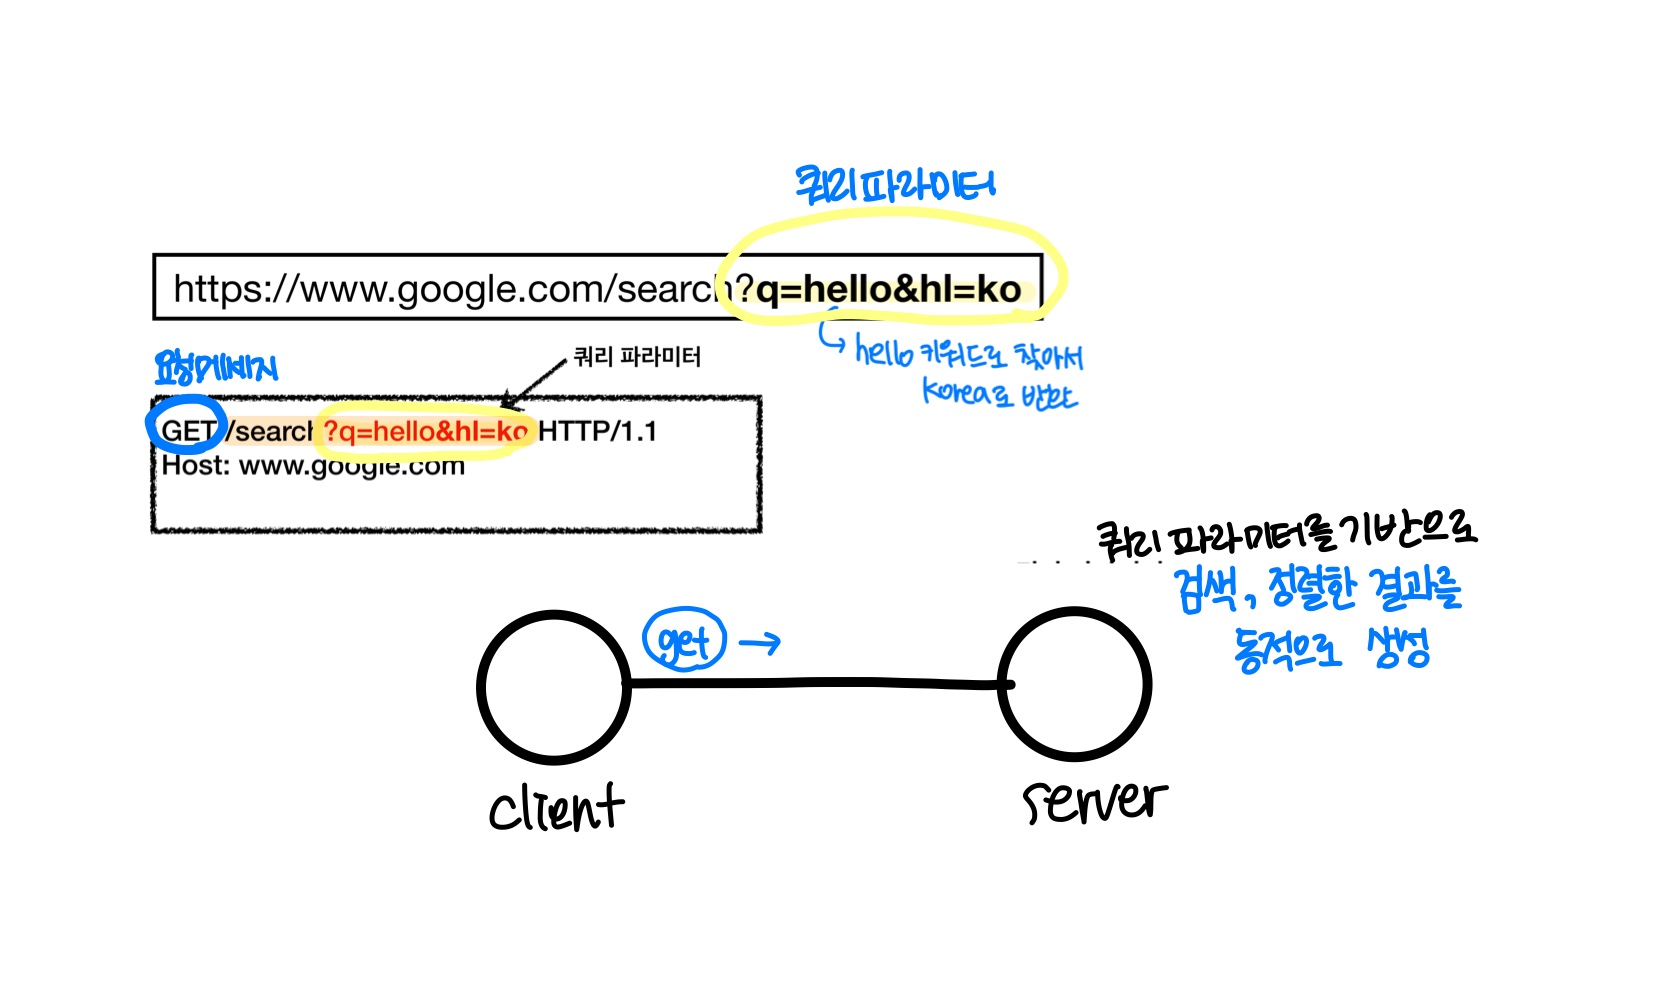 쿼리 파라미터
https://www.google.com/search?q=hello&hl=ko
hello 키워드로 찾아서
Korea로 반환
요청메세지
쿼리 파라미터
GET /search?q=hello&hl=ko HTTP/1.1
Host: www.google.com
쿼리 파라미터를 기반으로
검색, 정렬한 결과를
동적으로 생성
get →
client
server